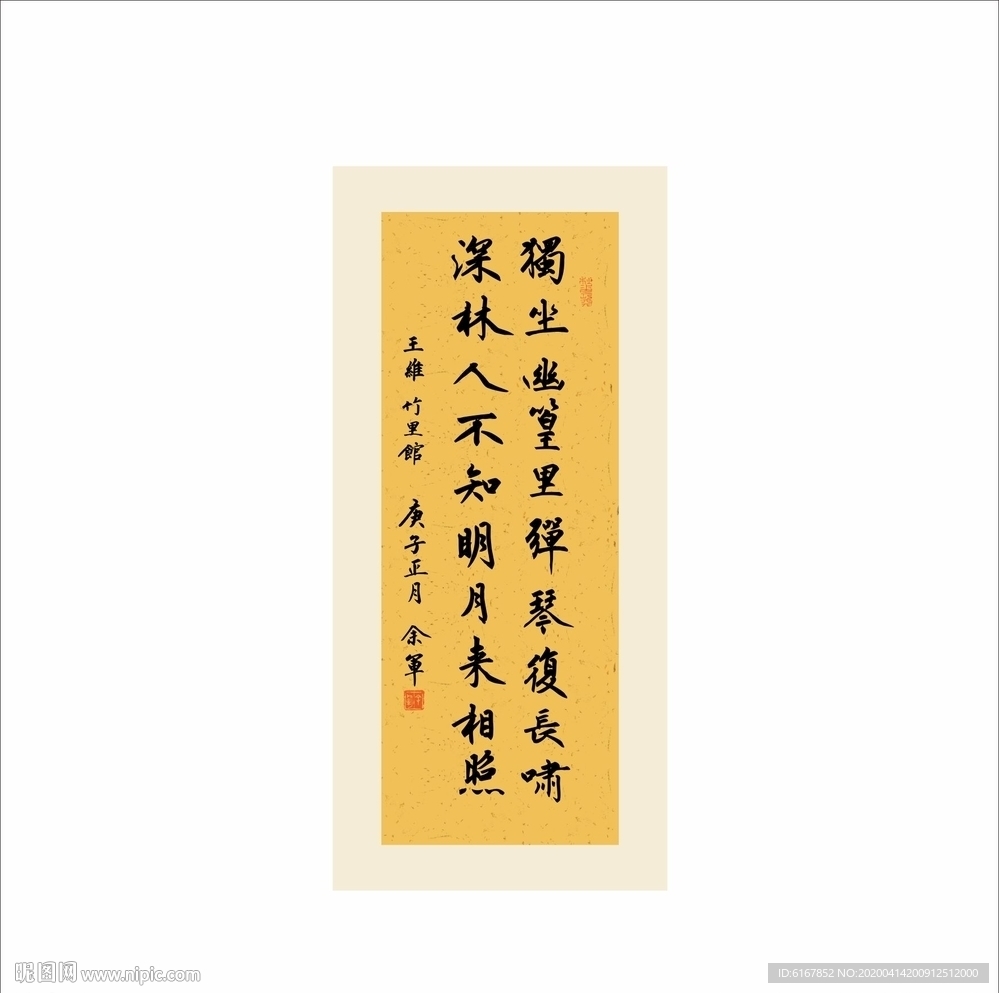 獨坐幽篁里彈琴復長嘯
深林人不知明月来相照
王維 竹里館 庚子正月 余軍
昵图网 www.nipic.com
ID:6167852 NO:20200414200912512000